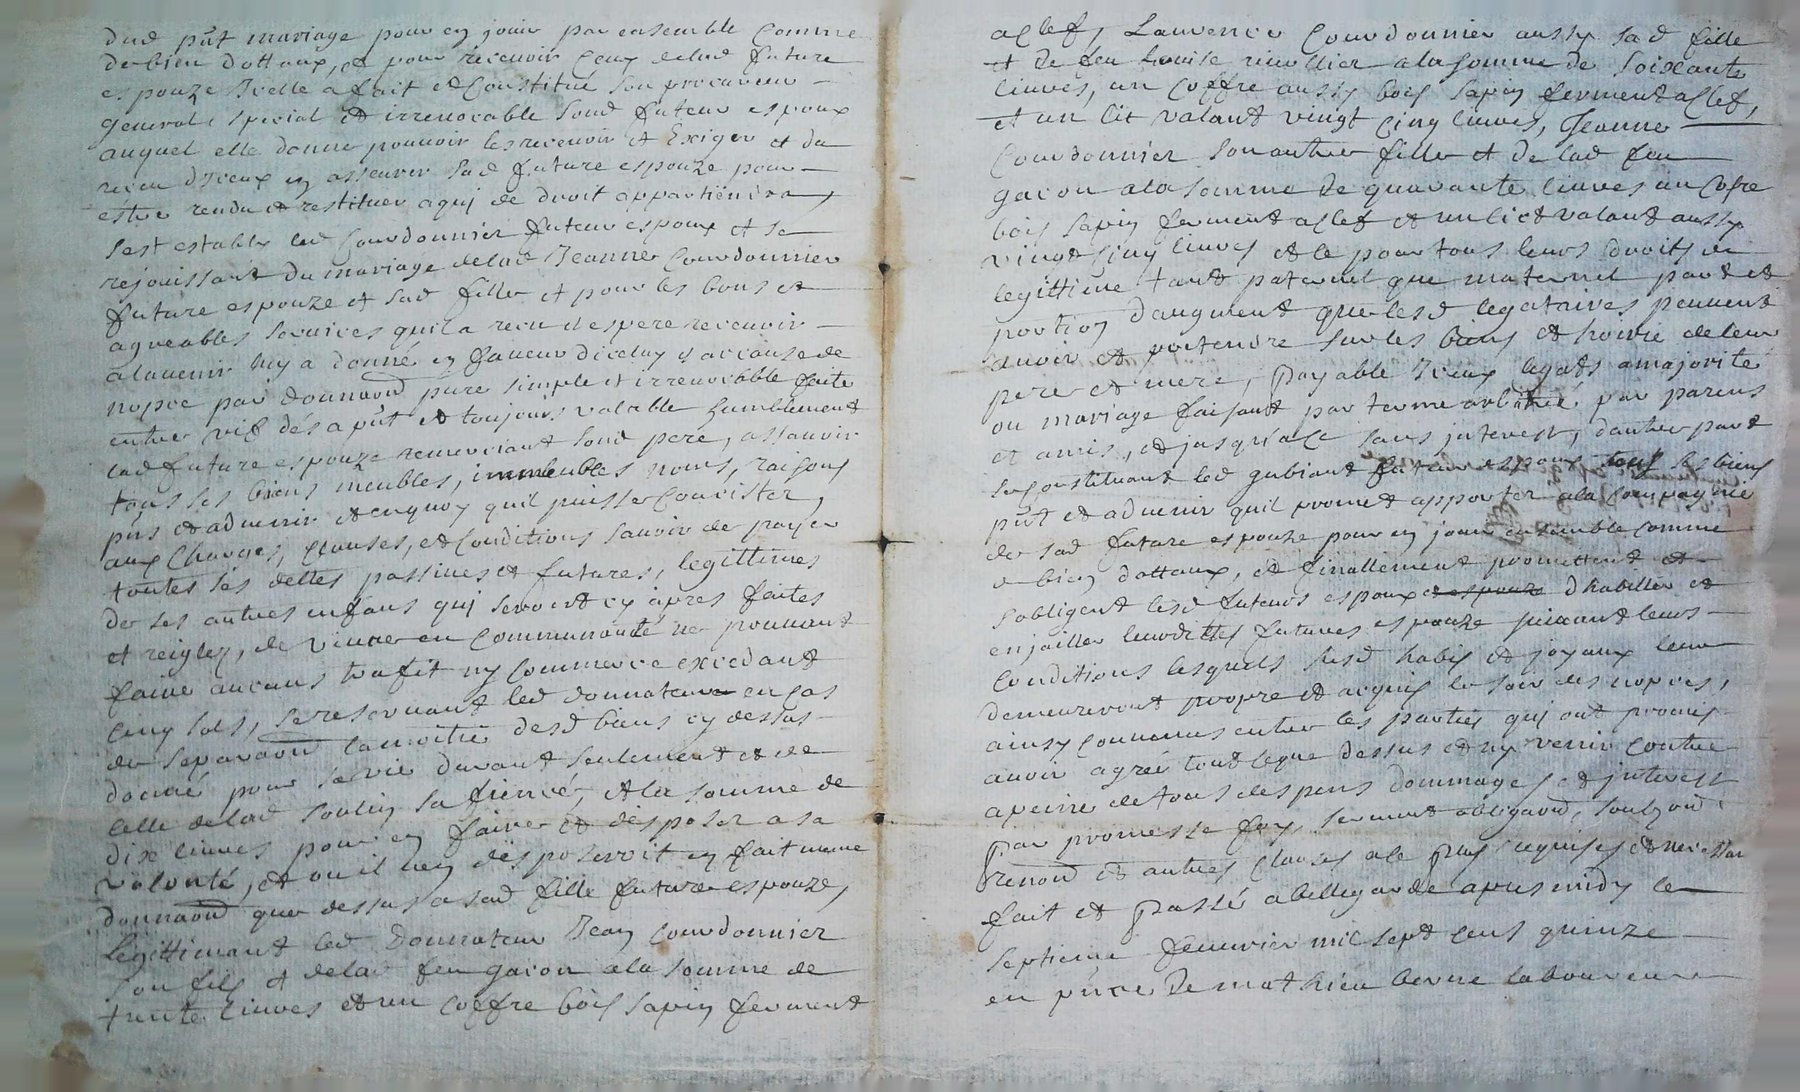 dud pnt mariage pour en jouir par ensemble comme
de bien dottaux, et pour recevoir ceux de lad future
espouze Icelle a fait et constitué son procureur
general special et irrevocable sond futeur espoux
auquel elle donne pouvoir les recevoir et Exiger et du
receu d'Iceux en asseurer sad future espouze pour
estre rendu et restituer a quj de droit appartiendra,
s'est establi led Courdounier futeur espoux et se
rejouissant du mariage de lad Jeanne Courdounier
future espouze et sad fille et pour les bons et
agreables services quil a receu et espere recevoir
a lavenir luy a donné en faveur diceluy et a cause de
nopce par donnaon pure simple et irrevocable faite
entre vif dés a pnt et toujours valable humblement
lad future espouze remerciant sond pere, assavoir
tous ses biens meubles, immeubles noms, raisons
pns et advenir et en quoy quil puisse consister,
aux charges, clauses, et conditions savoir de payer
toutes ses dettes passives et futures, legittimes
de ses autres enfans quj seront cy apres faites
et reiglez, de vivre en communauté ne pouvant
faire aucuns trafit ny commerce excedant
cinq sols, se reservant led donnateur en cas
de separaon la moitié desd biens cy dessus
donné pour sa vie durant seulement et de
celle de lad Soulin sa fiencé, et la somme de
dix livres pour en faire et desposer a sa
volonté, et ou il nen desposeroit en fait mesme
donnaon que dessus a sad fille future espouze,
legittimant led donnateur Jean Courdounier
son fils et de lad feu gacon a la somme de
trente livres et un coffre bois sapin fermant
a clef, Laurence Courdounier aussy sad fille
et de feu Louise a la somme de soixante
livres, un coffre aussy bois sapin fermant a clef,
et un lit valant vingt cinq livres, Jeanne
Courdounier son autre fille et de lad feu
gacon a la somme de quarante livres un cofre
bois sapin fermant a clef et un lict valant aussy
vingt cinq livres et ce pour tous leurs droits de
legittime tant paternel que maternel part et
portion daugment que lesd legataires peuvent
avoir et pretendre sur les biens et hoirie de leur
pere et mere, payable Iceux legats a majorité
ou mariage faisant par terme arbitré par parens
et amis, et jusqu'a ce sans interest, dautre part
se constituant led gubiant futeur espoux tous ses biens
pnt et advenir quil promet apporter a la compagnie
de sad future espouze pour en jouir ensemble comme
de bien dottaux, et finallement promettent et
s'obligent lesd futeurs espoux et espouze d'habiller et
enjoailler leurdittes futures espouze suivant leurs
conditions lesquels susd habis et joyaux leur
demeureront propre et acquis le soir des nopces,
ainsy convenus entre les parties quj ont promis
avoir agreé tout ce que dessus et ny venir contre
a peine de tous despens dommages et interest
par promesse foy serment obligaon, soubzon
renon et autres clauses a ce plus requises et necessaires
fait et passé a bellegarde apres midy le
septieme febvrier mil sept cens quinze
en pnce de mathieu berne laboureur